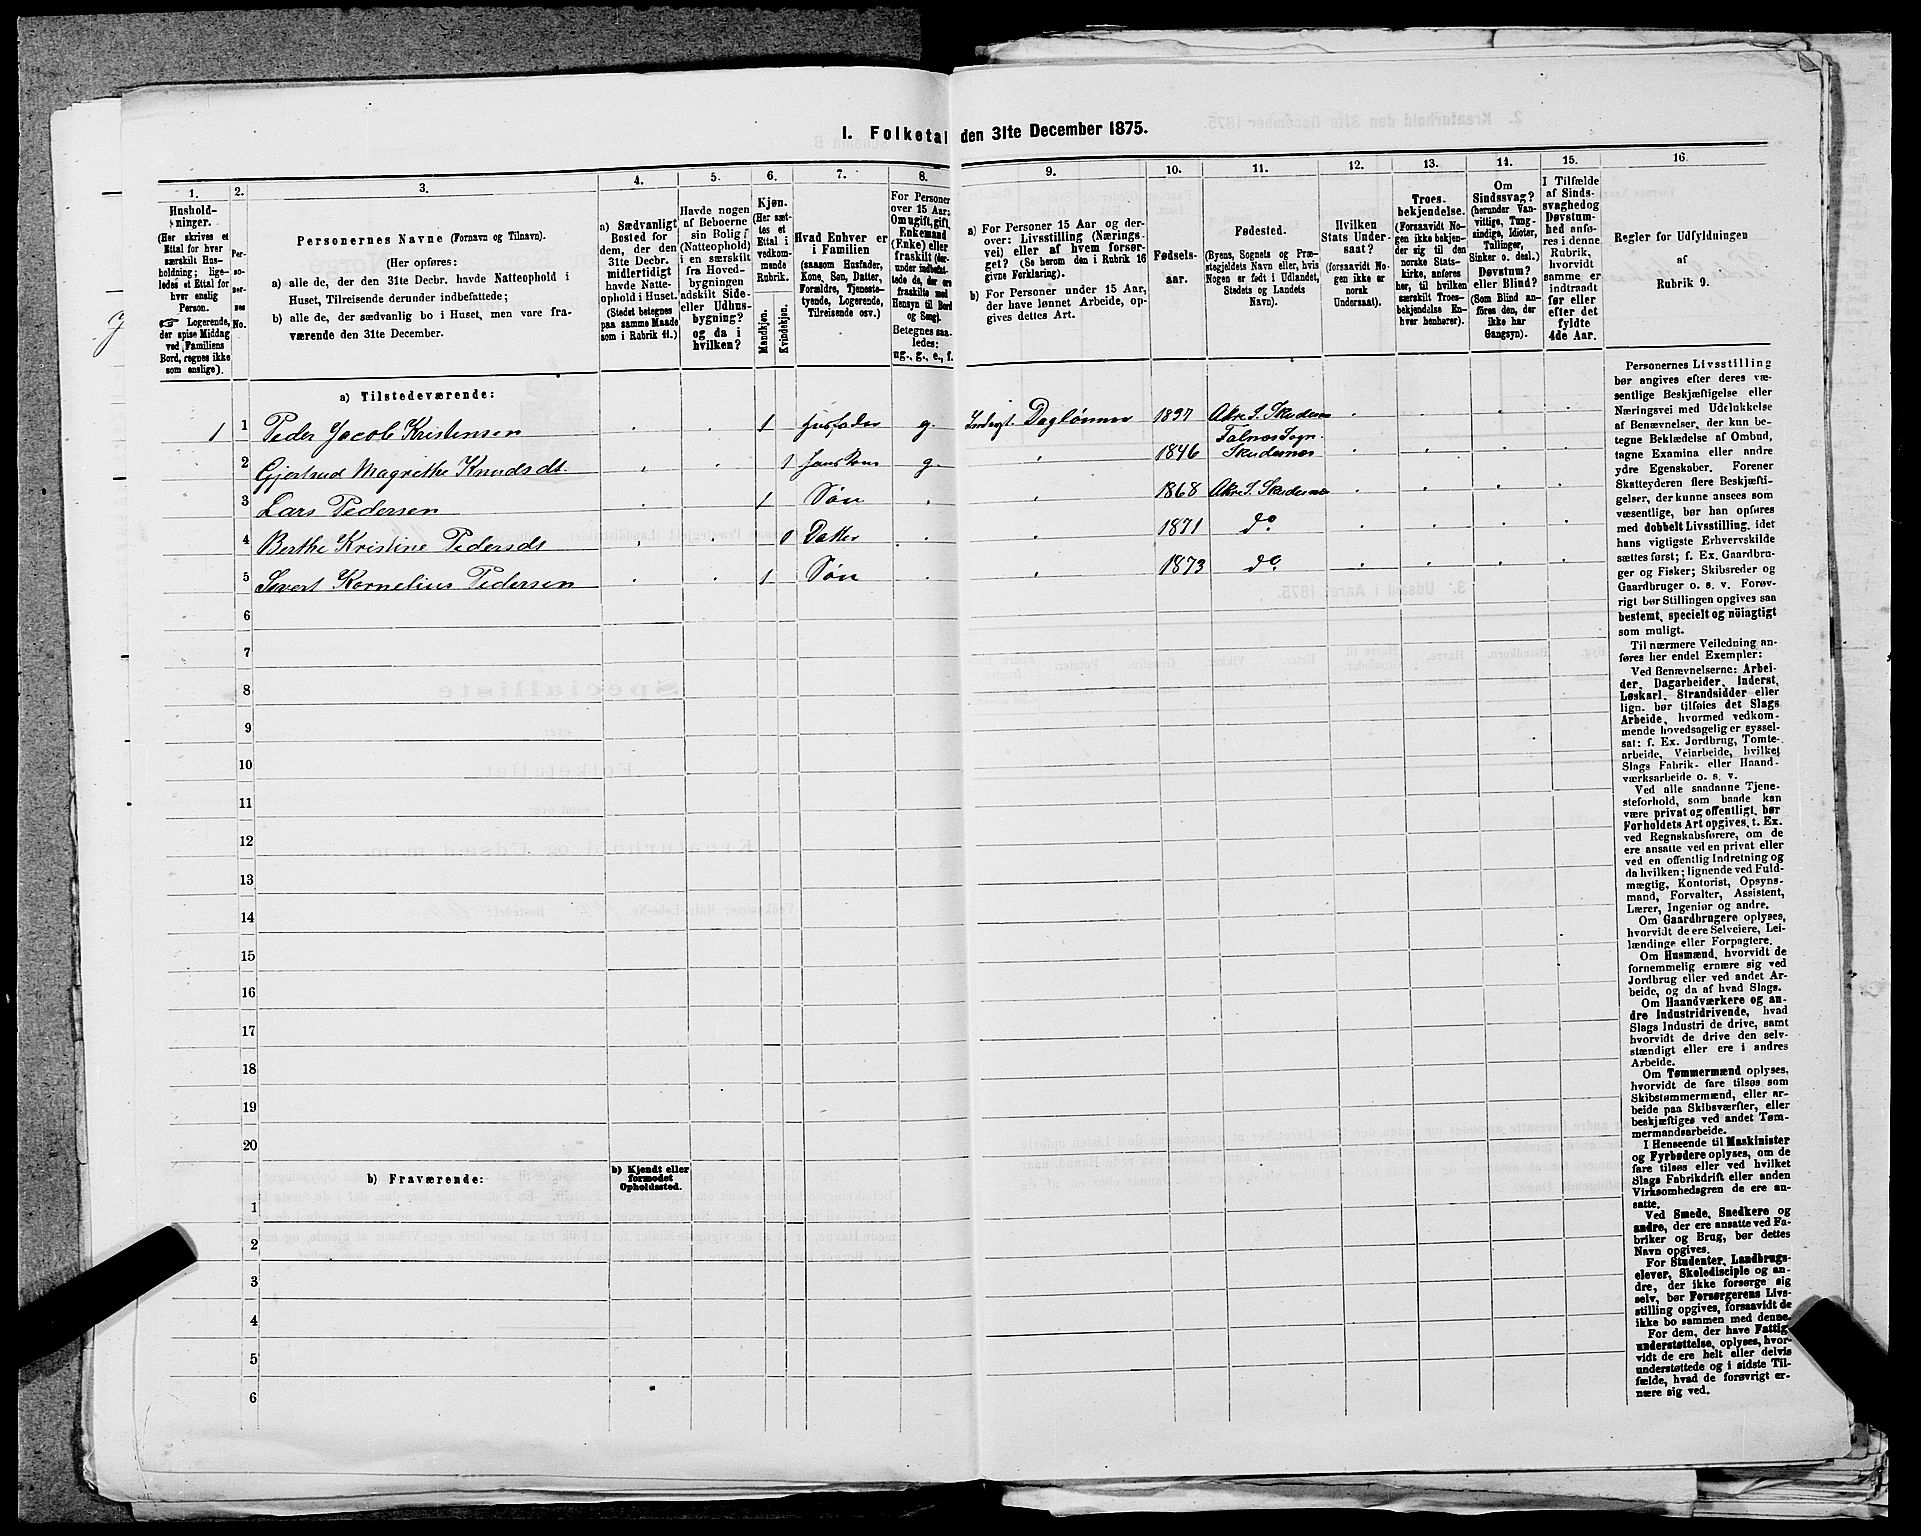 1. Folketal den 31te December 1875.
1.
Hushold-
ninger.
(Her skrives et
Ettal for hver
særskilt Hus-
holdning; lige-
ledes et Ettal for
hver enslig
Person.
☞ Logerende,
der spise Middag
ved Familiens
Bord, regnes ikke
som enslige).
2.
Per-
so-
ner-
nes
No.
3.
Personernes Navne (Fornavn og Tilnavn).
(Her opføres:
a) alle de, der den 31te Decbr. havde Natteophold i
Huset, Tilreisende derunder indbefattede;
b) alle de, der sædvanlig bo i Huset, men vare fra-
værende den 31te December.
4.
a) Sædvanligt
Bosted for
dem, der den
31te Decbr.
midlertidigt
havde Natte-
ophold i Huset.
(Stedet betegnes
paa samme Maade
som i Rubrik 11.)
5.
Havde nogen
af Beboerne
sin Bolig
(Natteophold)
i en særskilt
fra Hoved-
bygningen
adskilt Side-
eller Udhus-
bygning?
og da i
hvilken?
6.
Kjøn.
(Her sæt-
tes et
Ettal i
vedkom-
mende
Rubrik.
Mandkjøn.
Kvindekjøn.
7.
Hvad Enhver er
i Familien
(saasom Husfader,
Kone, Søn, Datter,
Forældre, Tjeneste-
tyende, Logerende,
Tilreisende osv.)
8.
For Personer
over 15 Aar:
Om ugift, gift,
Enkemand
(Enke) eller
fraskilt (der-
under indbefat-
tede de, der ere
fraskilte med
Hensyn til Bord
og Seng).
Betegnes saa-
ledes:
ug., g., e., f.
9.
a) For Personer 15 Aar og der-
over: Livsstilling (Nærings-
vei) eller af hvem forsør-
get? (Se herom den i Rubrik 16
givne Forklaring).
b) For Personer under 15 Aar,
der have lønnet Arbeide, op-
gives dettes Art.
10.
Fødsels-
aar.
11.
Fødested.
(Byens, Sognets og Præ-
stegjeldets Navn eller, hvis
Nogen er født i Udlandet,
Stedets og Landets
Navn).
12.
Hvilken
Stats Under-
saat?
(forsaavidt No-
gen ikke er
norsk
Undersaat).
13.
Troes-
bekjendelse.
(Forsaavidt No-
gen ikke bekjen-
der sig til den
norske Stats-
kirke, anføres
her, til hvilken
særskilt Troes-
bekjendelse En-
hver henhører).
14.
Om
Sindssvag?
(herunder Van-
vittige, Tung-
sindige, Idioter,
Tullinger,
Sinker o. desl.)
Døvstum?
eller Blind?
(Som Blind an-
føres den, der
ikke har
Gangsyn).
15.
I Tilfælde
af Sinds-
svaghed og
Døvstum-
hed anfø-
res i denne
Rubrik,
hvorvidt
samme er
indtraadt
før eller
efter det
fyldte
4de Aar.
16
Regler for Udfyldningen
af
Rubrik 9.
a) Tilstedeværende:
1 1 Peder Jacob Kristensen 1 Husfader g. Daglønner Akre S. Skudenes
2 Gjertrud Magrethe Knudsdt. 1 g. 1846 Falnes Sogn. Skudenes
3 Lars Pedersen 1 Søn 1868 Akre S. Skudenes
4 Berthe Kristine Pedersdt 0 Datter 1871 do
5 Sivert Kornelius Pedersen 1 Søn 1873 do
6
7
8
9
10
11
12
13
14
15
16
17
18
19
20
b) Fraværende:
b) Kjendt eller
formodet
Opholdssted.
1
2
3
4
5
6
Personernes Livsstilling
bør angives efter deres væ-
sentlige Beskjæftigelse eller
Næringsvei med Udelukkelse
af Benævnelser, der kun be-
tegne Beklædelse af Ombud,
tagne Examina eller andre
ydre Egenskaber. Forener
Skatteyderen flere Beskjæfti-
gelser, der kunne ansees som
væsentlige, bør han opføres
med dobbelt Livsstilling, idet
hans vigtigste Erhvervskilde
sættes først; f. Ex. Gaardbru-
ger og Fisker; Skibsreder og
Gaardbruger o. s. v. Forøv-
rigt bør Stillingen opgives saa
bestemt, specielt og nöiagtigt
som muligt.
Til nærmere Veiledning an-
føres her endel Exempler:
Ved Benævnelserne: Arbei-
der, Dagarbeider, Inderst,
Løskarl, Strandsidder eller
lign. bør tilføies det Slags
Arbeide, hvormed vedkom-
mende hovedsagelig er syssel-
sat: f. Ex. Jordbrug, Tomte-
arbeide, Veiarbeide, hvilket
Slags Fabrik- eller Haand-
værksarbeide o. s. v.
Ved alle saadanne Tjene-
steforhold, som baade kan
være privat og offentligt, bør
Forholdets Art opgives, t. Ex.
ved Regnskabsførere, om de
ere ansatte ved en privat eller
ved en offentlig Indretning og
da hvilken; lignende ved Fuld-
mægtig, Kontorist, Opsyns-
mand, Forvalter, Assistent,
Lærer, Ingeniør og andre.
Om Gaardbrugere oplyses,
hvorvidt de ere Selveiere, Lei-
lændinge eller Forpagtere.
Om Husmænd, hvorvidt de
fornemmelig ernære sig ved
Jordbrug eller ved andet Ar-
beide, og da af hvad Slags.
Om Haandværkere og an-
dre Industridrivende, hvad
Slags Industri de drive, samt
hvorvidt de drive den selv-
stændigt eller ere i andres
Arbeide.
Om Tømmermænd oplyses,
hvorvidt de fare tilsøs som
Skibstømmermænd, eller ar-
beide paa Skibsværfter, eller
beskjæftiges ved andet Tøm-
mermandsarbeide.
I Henseende til Maskinister
og Fyrbødere oplyses, om de
fare tilsøs eller ved hvilket
Slags Fabrikdrift eller anden
Virksomhedsgren de ere an-
satte.
Ved Smede, Snedkere og
andre, der ere ansatte ved Fa-
briker og Brug, bør dettes
Navn opgives.
For Studenter, Landbrugs-
elever, Skoledisciple og an-
dre, der ikke forsørge sig
selv, bør Forsørgerens Livs-
stilling opgives, forsaavidt de
ikke bo sammen med denne.
For dem, der have Fattig-
understøttelse, oplyses, hvor-
vidt de ere helt eller delvis
understøttede og i sidste Til-
fælde, hvad de forøvrigt er-
nære sig ved.